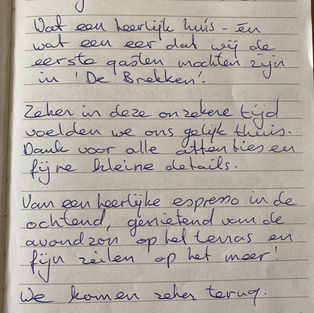 Wat een heerlijk huis - én
wat een eer dat wij de
eerste gasten mochten zijn
in 'De Brekken'.
Zeker in deze onzekere tijd
voelden we ons gelijk thuis.
Dank voor alle attenties en
fijne kleine details.
Van een heerlijke espresso in de
ochtend, genietend van de
avondzon op het terras en
fijn zeilen op het meer!
We komen zeker terug.